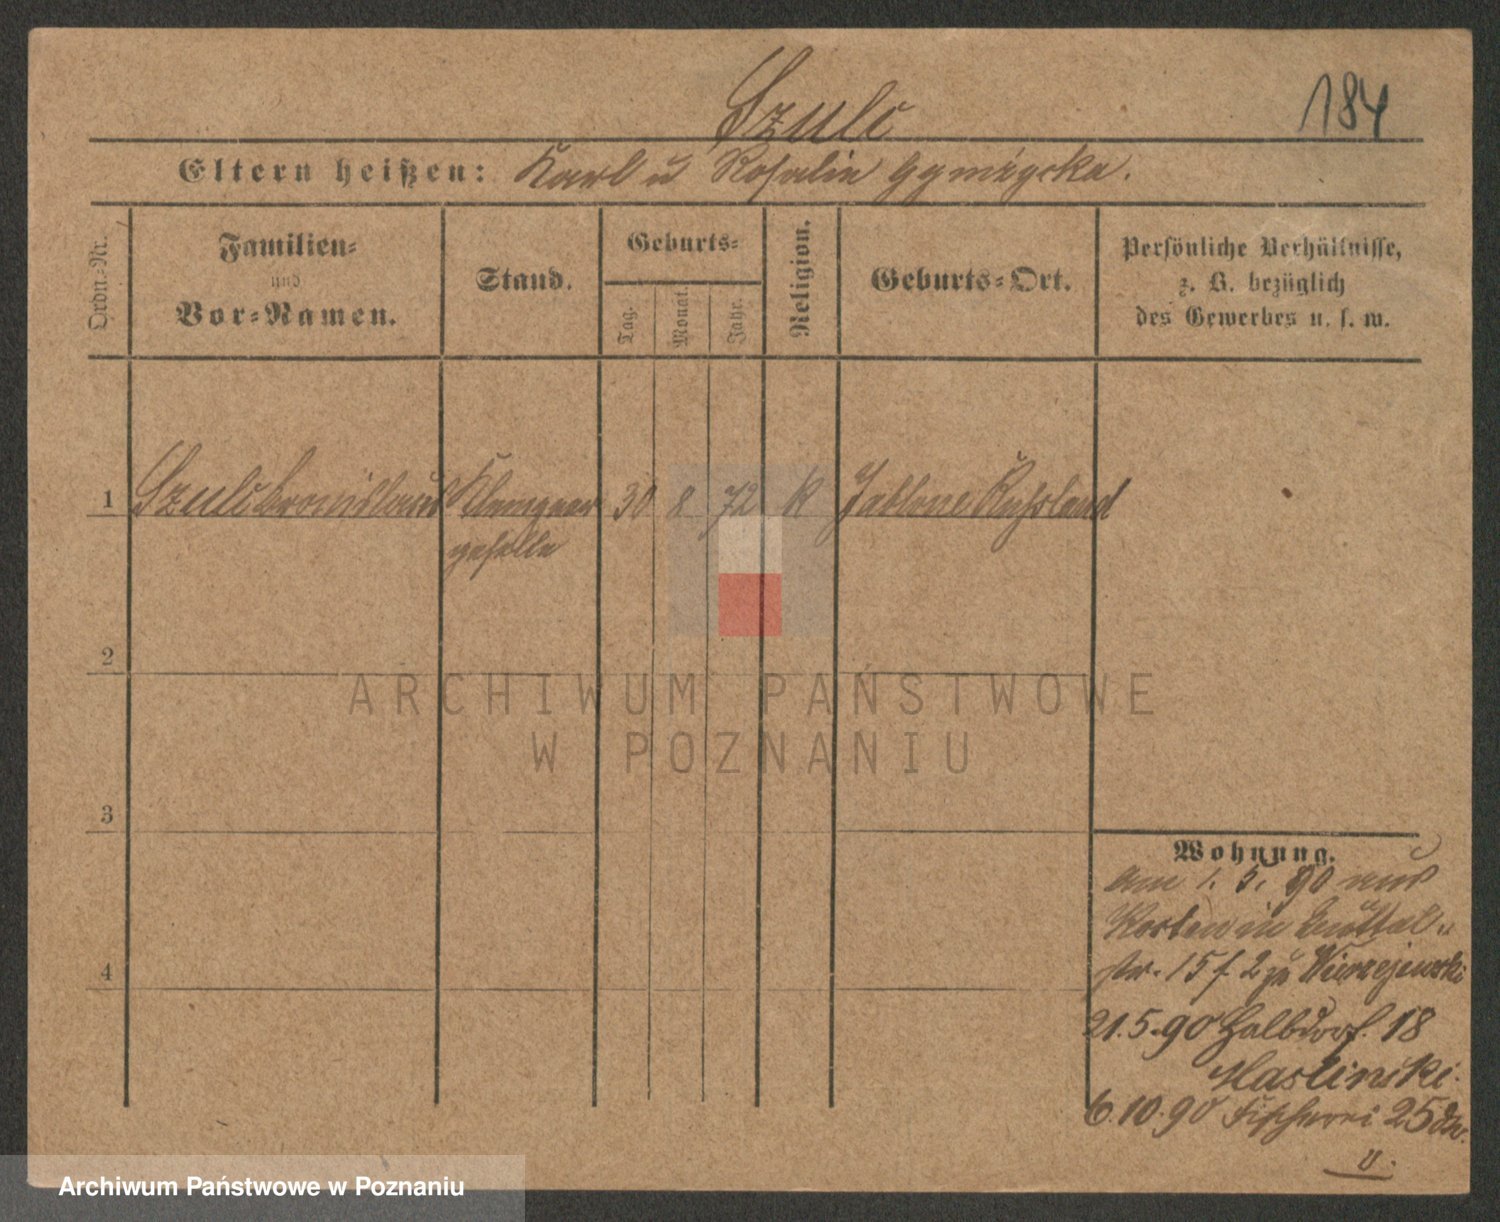 Szulc
184
Eltern heißen: Karl u Rosalie
Ordn.-Nr.
Familien-
und
Vor-Namen.
Stand.
Geburts-
Tag.
Monat.
Jahr.
Religion.
Geburts-Ort.
Persönliche Verhältnisse,
z. B. bezüglich
des Gewerbes u. s. w.
1 Szulc Bronislaus Klempner 30 8 72 K Jablone Russland
geselle
2
ARCHIWUM PAŃSTWOWE
W POZNANIU
3
Wohnung.
am 1. 5. 90 aus
in
str. 15 f. 2 zu Wierzejewski
4
21.5.90 Halbdorf. 18
Maslinski.
6.10.90 Fischerei 25
Archiwum Państwowe w Poznaniu